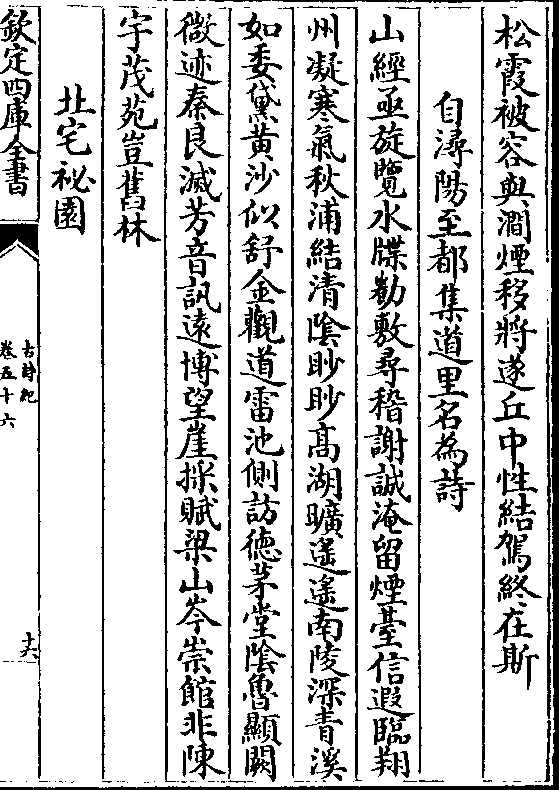 松霞被容與澗煙移將遂丘中性結駕終在斯
自潯陽至都集道里名為詩
山經亟旋覽水牒勌敷尋稽謝誠淹留煙臺信遐臨翔
州凝寒氣秋浦結清陰眇眇高湖曠遙遙南陵深青溪
如委黛黄沙似舒金觀道雷池側訪德茅堂陰魯顯闕
微迹秦良滅芳音訊遠博望崖採賦梁山岑崇館非陳
宇茂苑豈舊林
北宅祕園
欽定四庫全書
古詩紀
卷五十六
十六